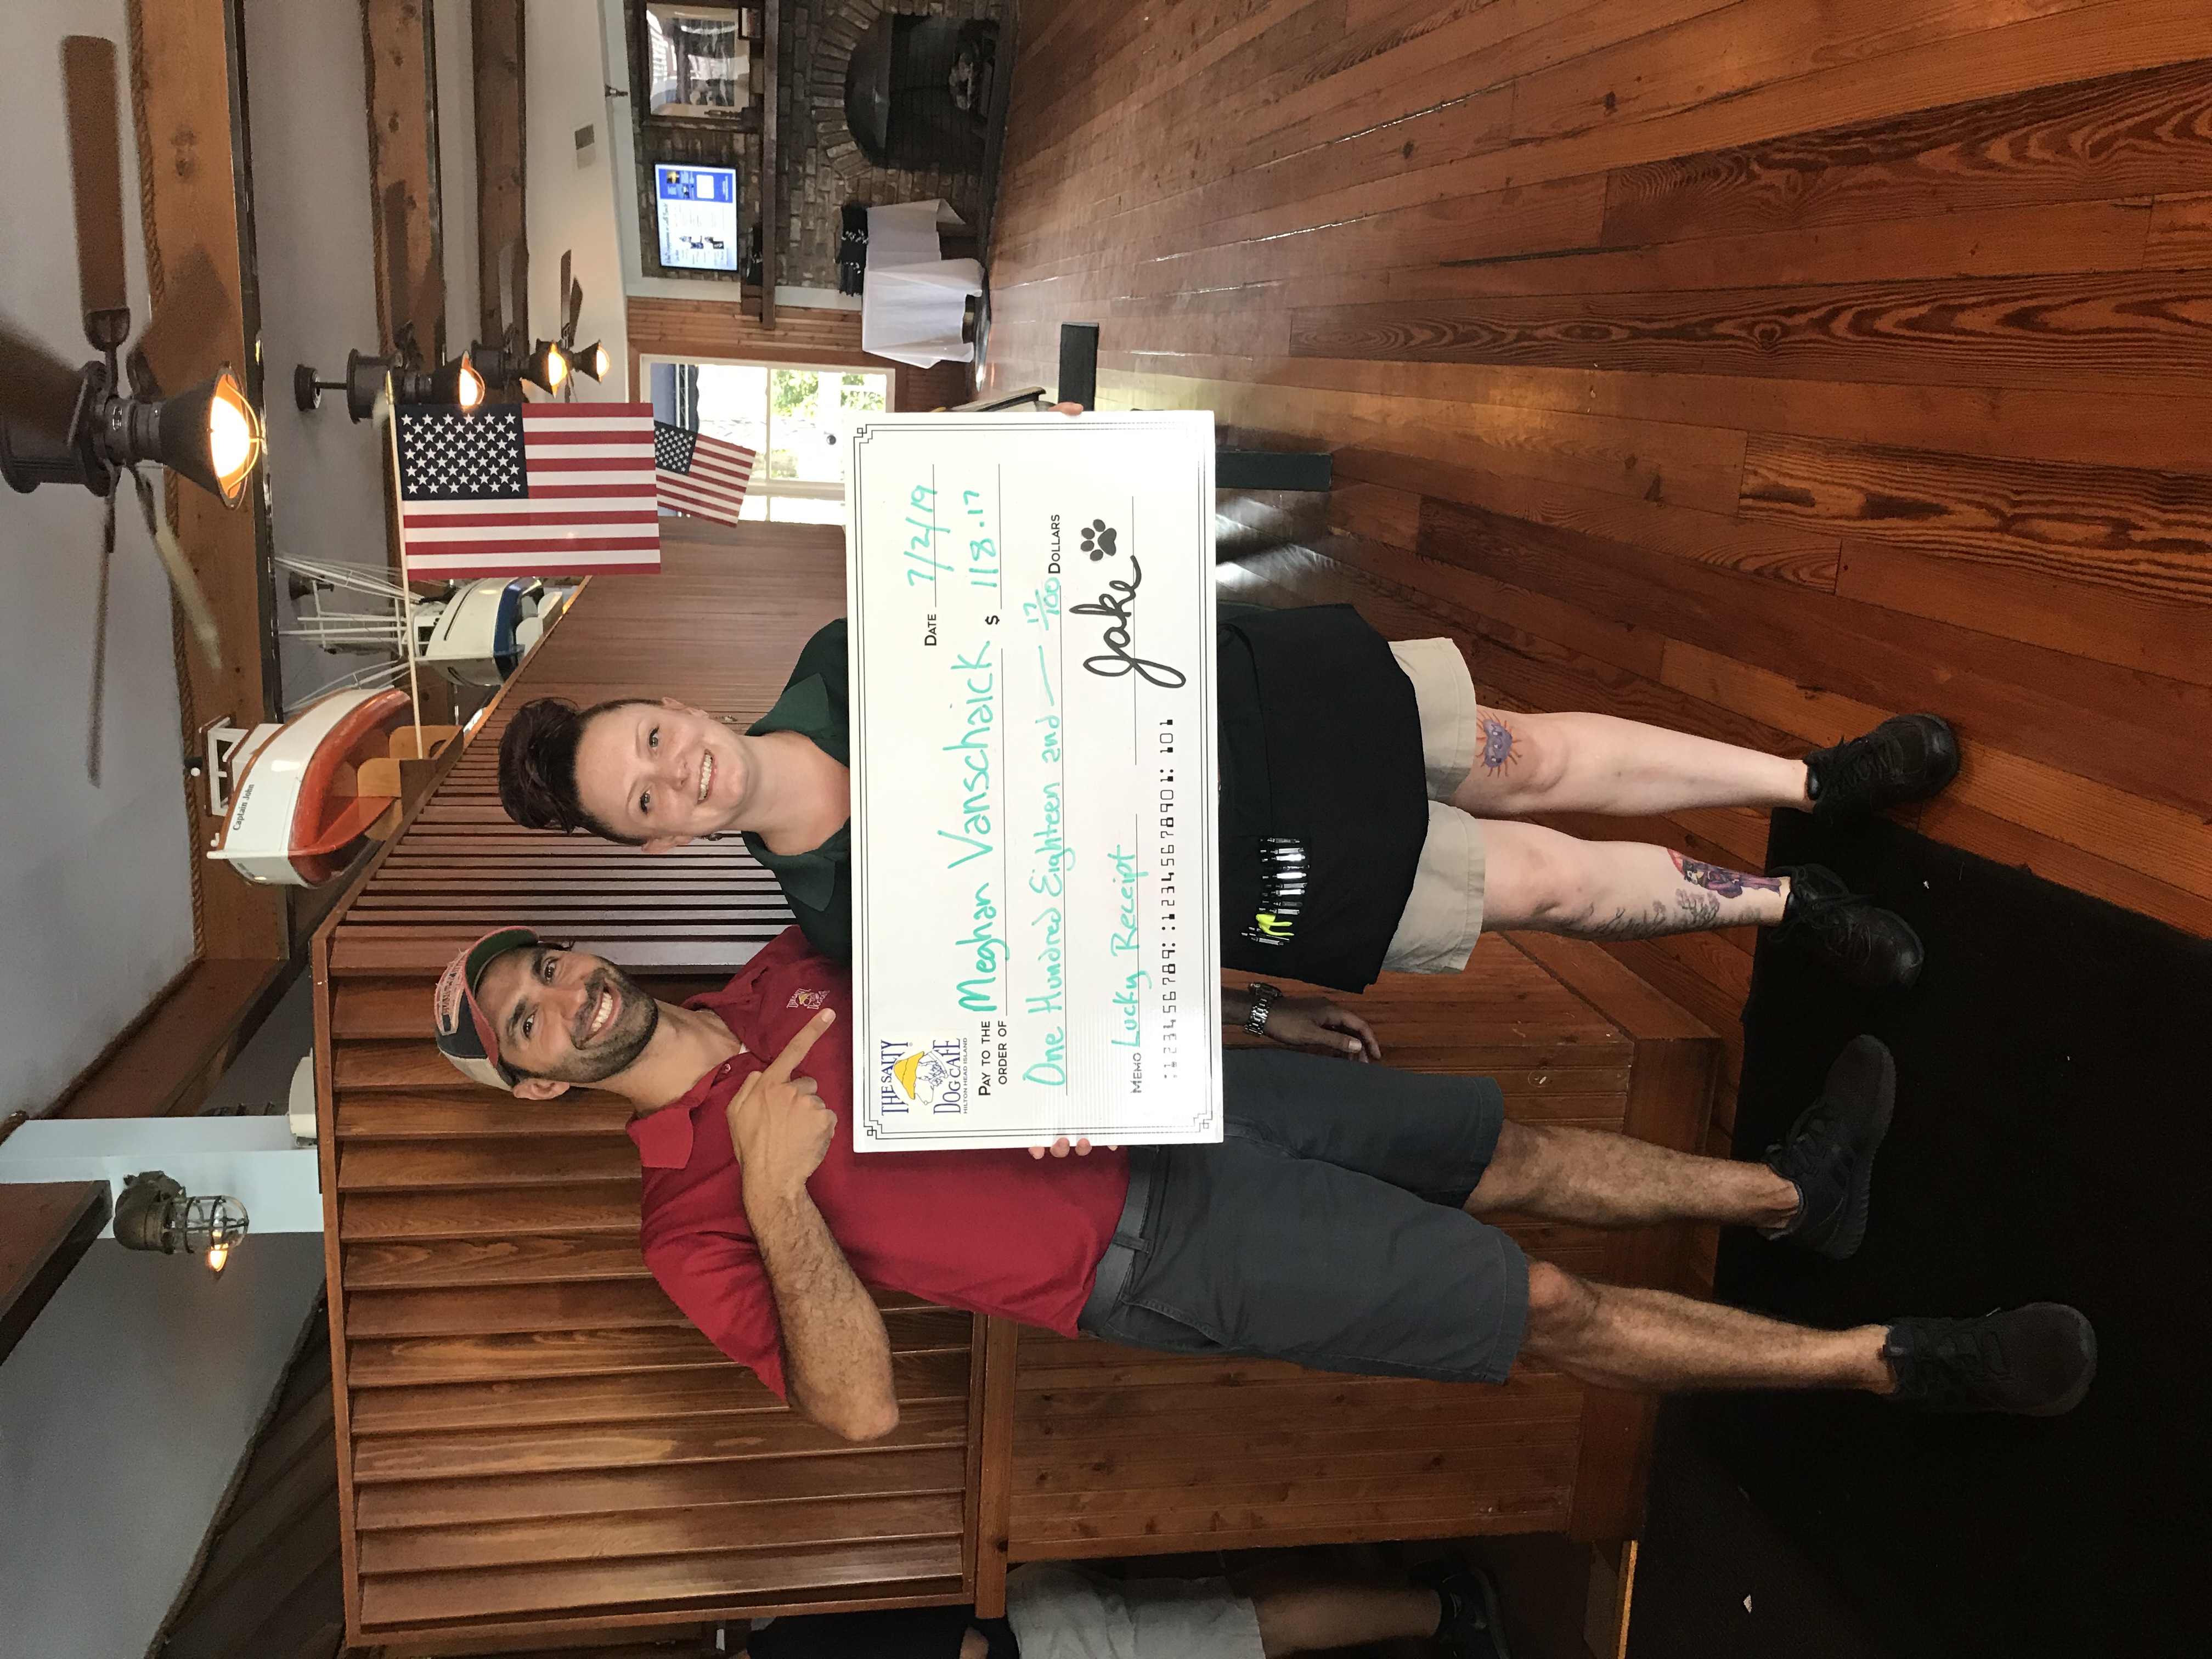 Captain John
THE SALTY
DOG CAFE
HILTON HEAD ISLAND
DATE 7/2/19
PAY TO THE
ORDER OF Meghan Vanschaick $ 118.17
One Hundred Eighteen and — 17/100 DOLLARS
MEMO Lucky Receipt Jake
⑆123456789⑆ ⑆12345678901⑆ 101
THE SALTY
DOG CAFE